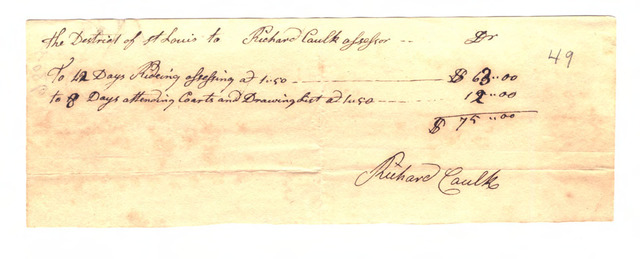 the District of St Louis to Richard Caulk assessor .. Dr
49
To 42 Days Rideing assessing at 1..50 $ 63..00
to 8 Days attending Coarts and Drawing List at 1..50 12..00
$ 75..00
Richard Caulk